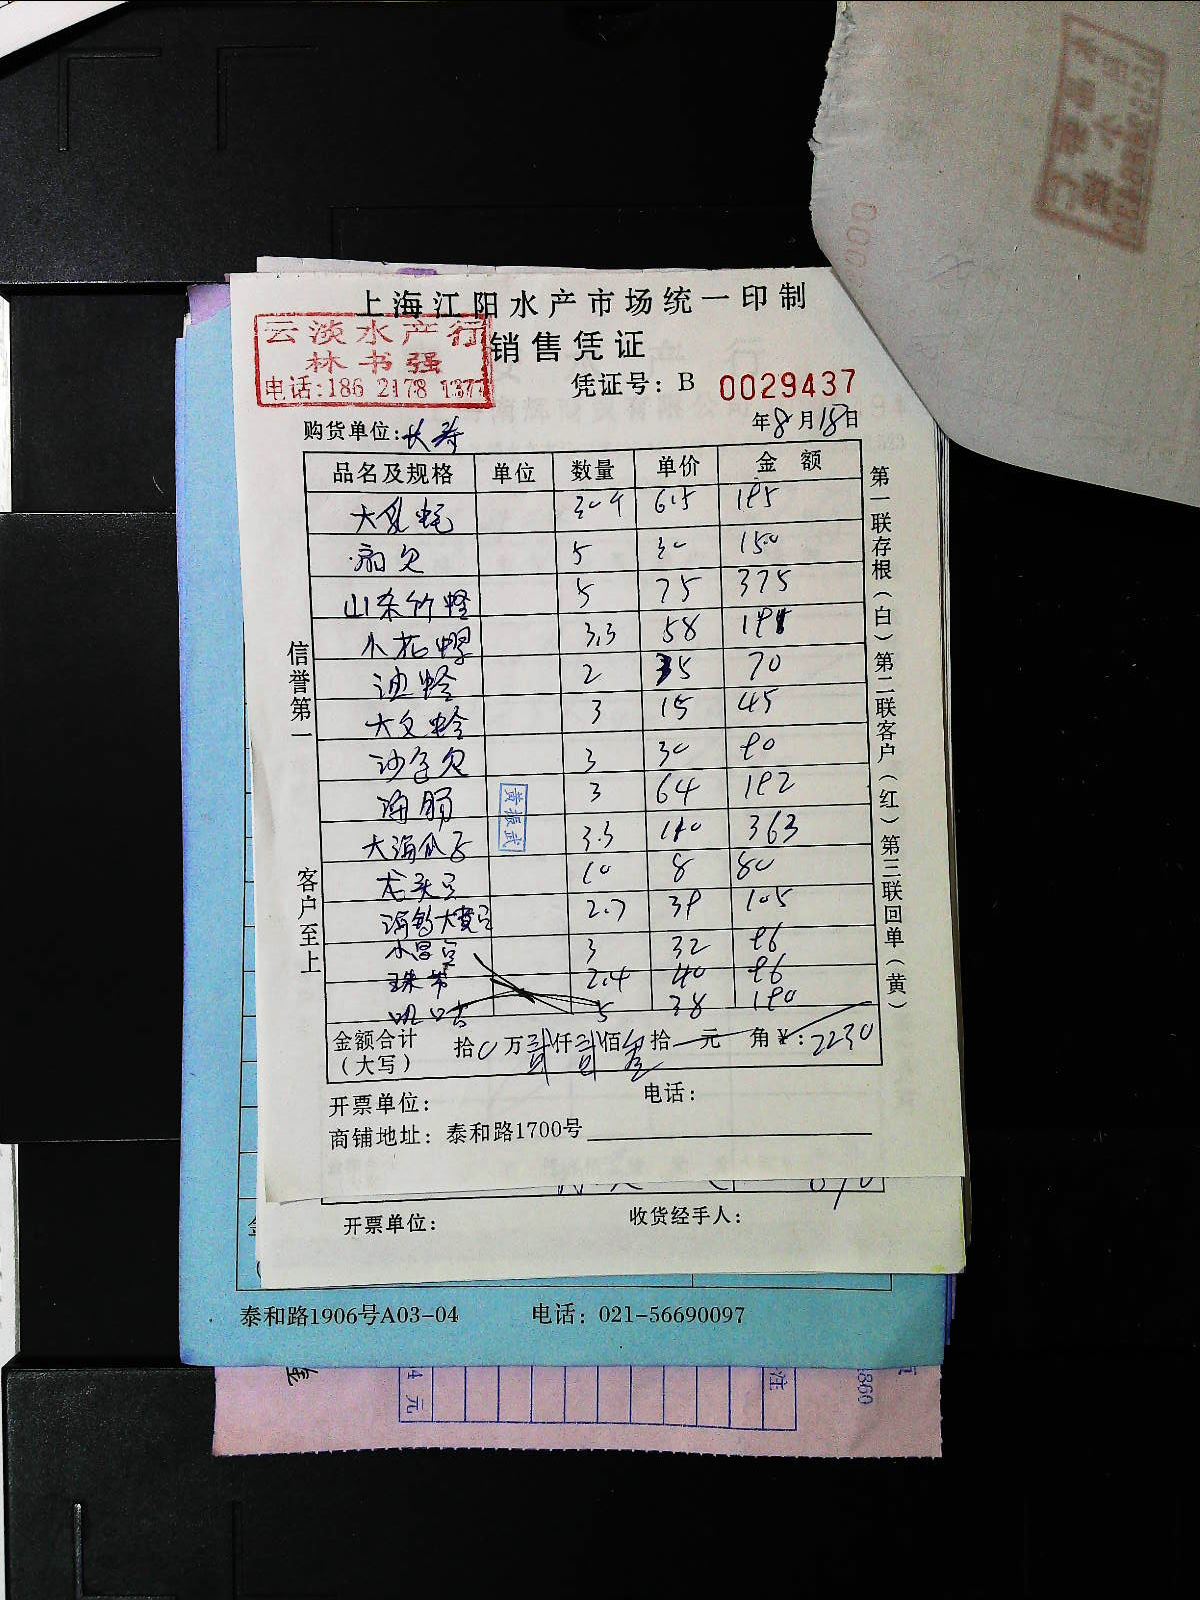 上海江阳水产市场统一印制
云淡水产行
林书强
电话:186 2178 1377
销售凭证
凭证号: B 0029437
购货单位: 长寿
年8月18日
品名及规格 单位 数量 单价 金额
大 6.5 195
扇贝 5 30 150
山东竹蛏 5 75 375
小花螺 3.3 58 191
迪蛤 2 35 70
大文蛤 3 15 45
沙包贝 3 30 90
海肠 3 64 192
大海瓜子 3.3 110 363
龙头 10 8 80
海钓大黄 2.7 39 105
小昌 3 32 96
珠带 2.4 40 96
5 38 190
黄振武
金额合计
(大写) 拾0万贰仟贰佰叁拾一元 角¥: 2230
开票单位: 电话:
商铺地址: 泰和路1700号
信誉第一 客户至上
第一联存根(白) 第二联客户(红) 第三联回单(黄)
开票单位: 收货经手人:
泰和路1906号A03-04 电话: 021-56690097
元
注
860